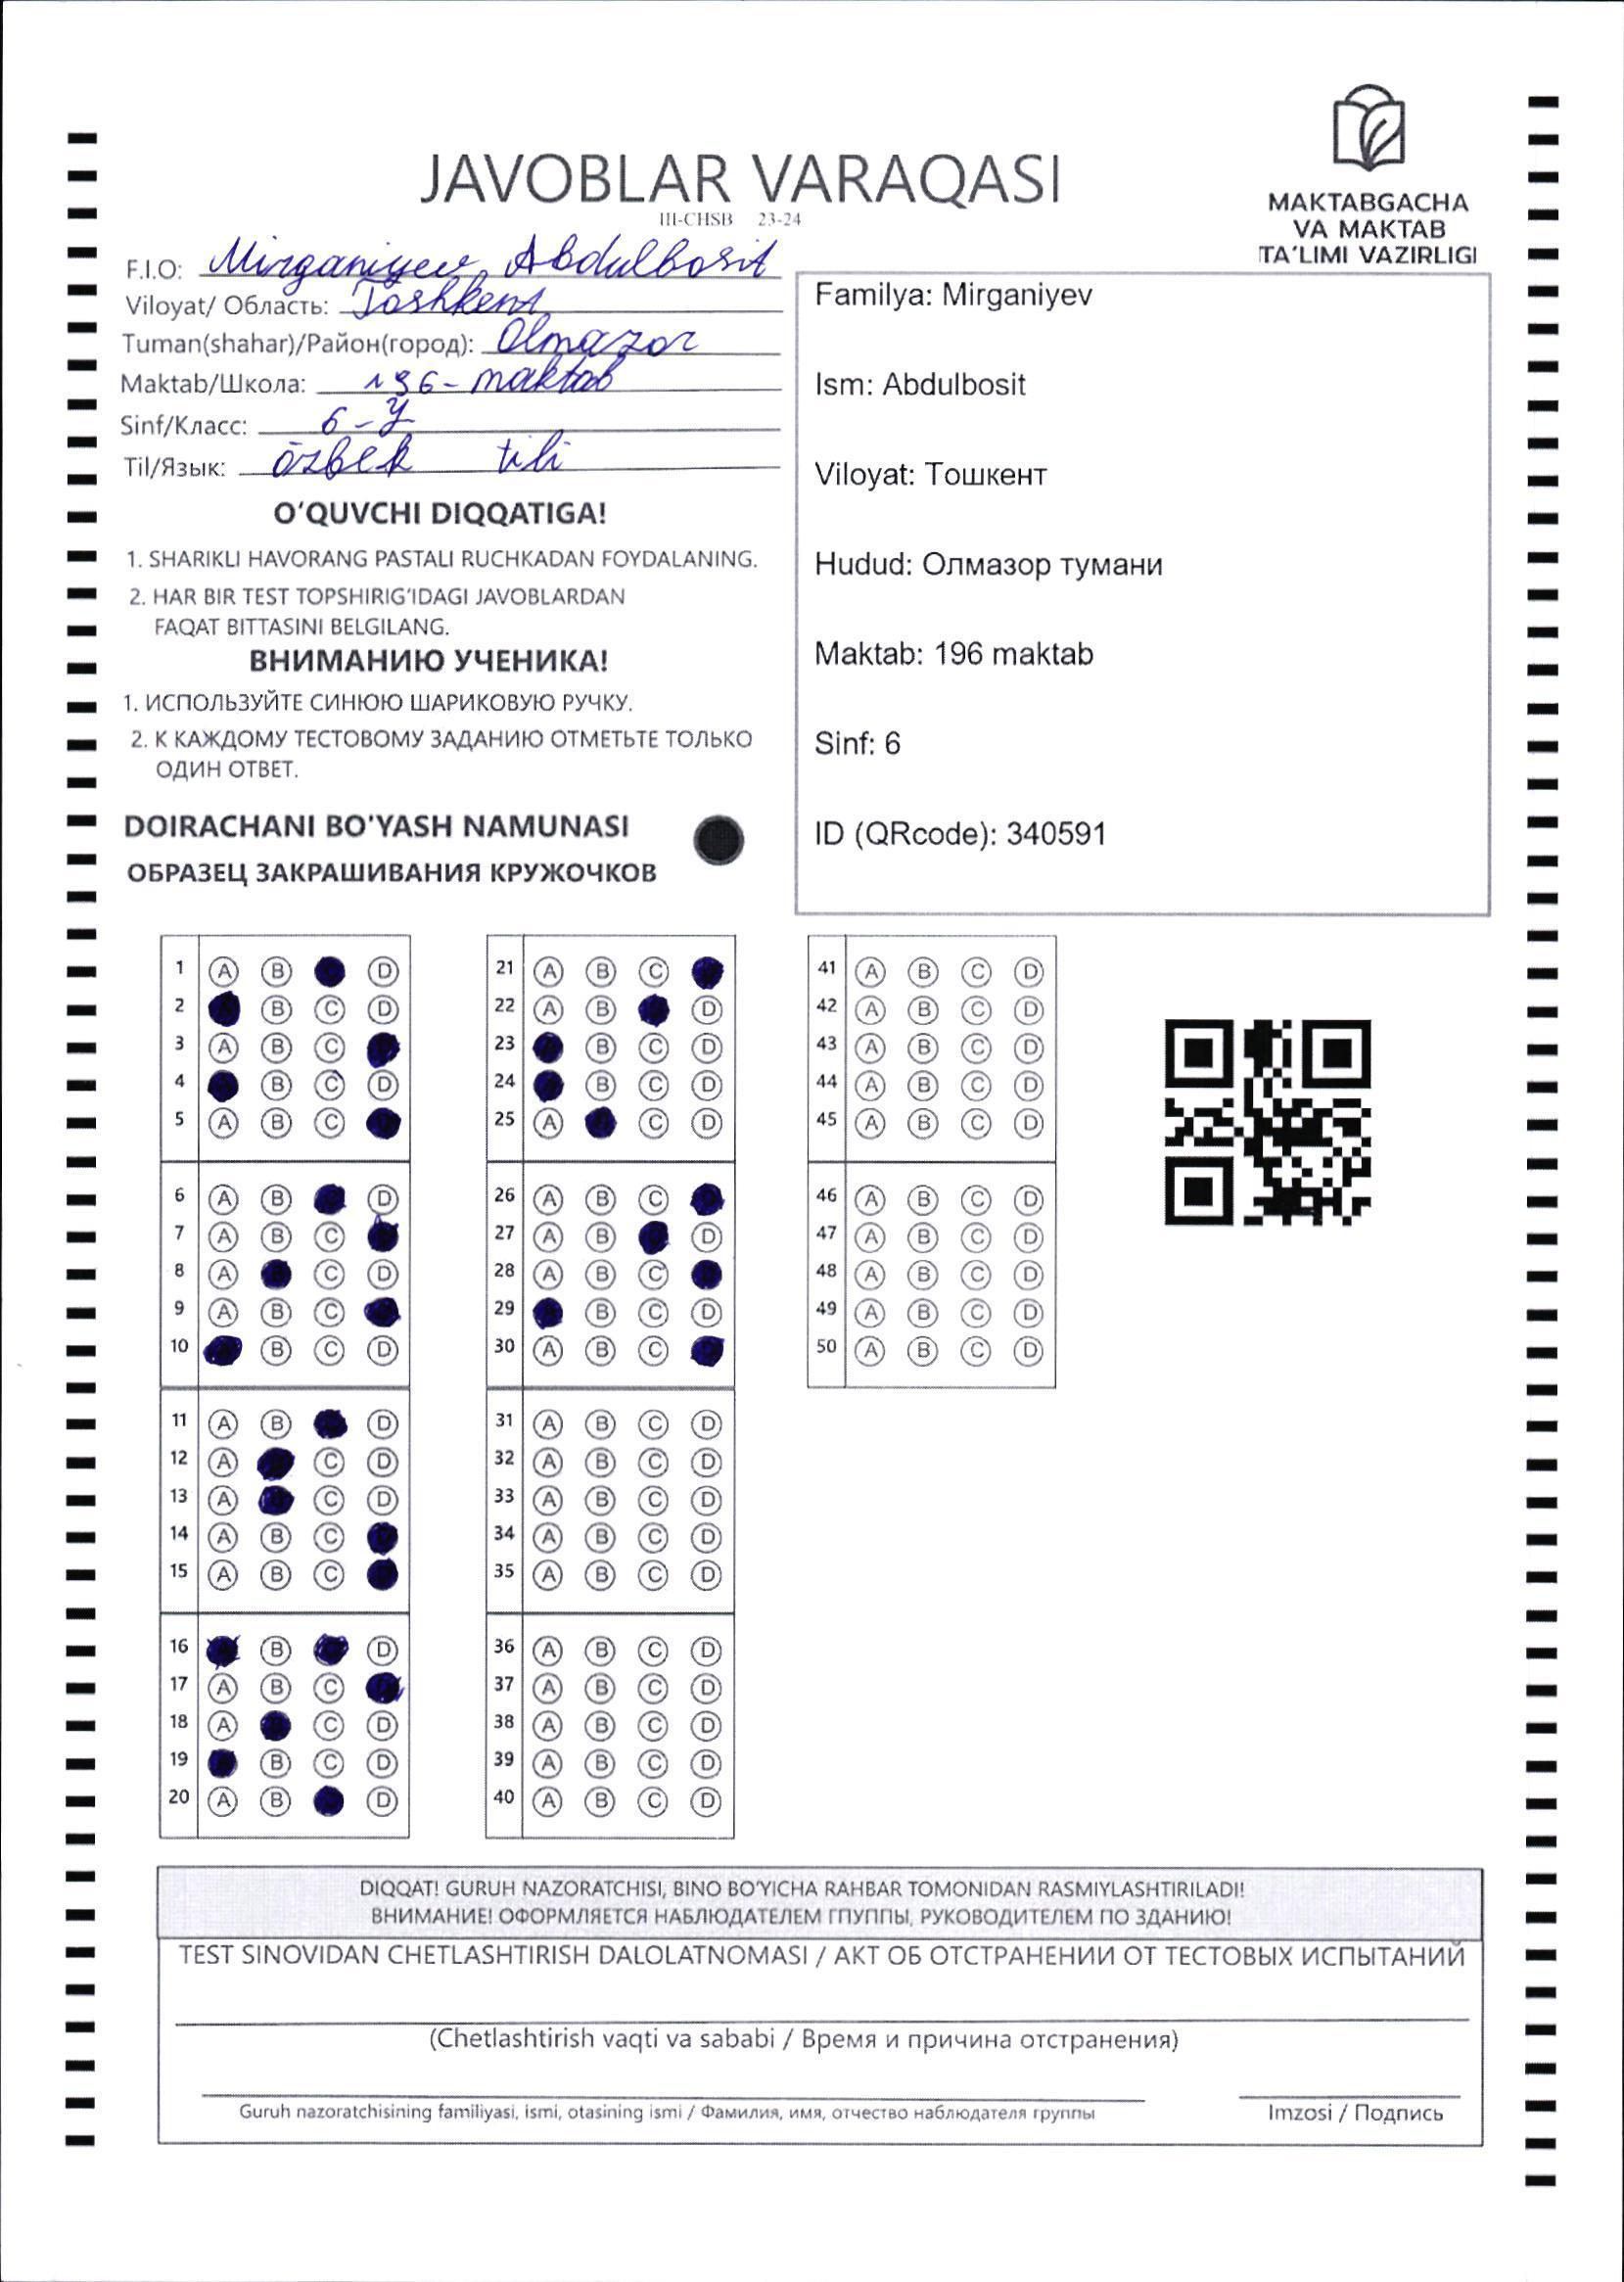 JAVOBLAR VARAQASI
III-CHSB 23-24
MAKTABGACHA
VA MAKTAB
TA'LIMI VAZIRLIGI
F.I.O: Mirganiyev Abdulbosit
Viloyat/ Область: Toshkent
Tuman(shahar)/Район(город): Olmazor
Maktab/Школа: 196-maktab
Sinf/Класс: 6-
Til/Язык: özbek tili
O'QUVCHI DIQQATIGA!
1. SHARIKLI HAVORANG PASTALI RUCHKADAN FOYDALANING.
2. HAR BIR TEST TOPSHIRIG'IDAGI JAVOBLARDAN
FAQAT BITTASINI BELGILANG.
ВНИМАНИЮ УЧЕНИКА!
1. ИСПОЛЬЗУЙТЕ СИНЮЮ ШАРИКОВУЮ РУЧКУ.
2. К КАЖДОМУ ТЕСТОВОМУ ЗАДАНИЮ ОТМЕТЬТЕ ТОЛЬКО
ОДИН ОТВЕТ.
DOIRACHANI BO'YASH NAMUNASI
ОБРАЗЕЦ ЗАКРАШИВАНИЯ КРУЖОЧКОВ
Familya: Mirganiyev
Ism: Abdulbosit
Viloyat: Тошкент
Hudud: Олмазор тумани
Maktab: 196 maktab
Sinf: 6
ID (QRcode): 340591
1 A B D
2 B C D
3 A B C
4 B C D
5 A B C
6 A B D
7 A B C
8 A C D
9 A B C
10 B C D
11 A B D
12 A C D
13 A C D
14 A B C
15 A B C
16 B D
17 A B C
18 A C D
19 B C D
20 A B D
21 A B C
22 A B D
23 B C D
24 B C D
25 A C D
26 A B C
27 A B D
28 A B C
29 B C D
30 A B C
31 A B C D
32 A B C D
33 A B C D
34 A B C D
35 A B C D
36 A B C D
37 A B C D
38 A B C D
39 A B C D
40 A B C D
41 A B C D
42 A B C D
43 A B C D
44 A B C D
45 A B C D
46 A B C D
47 A B C D
48 A B C D
49 A B C D
50 A B C D
DIQQAT! GURUH NAZORATCHISI, BINO BO'YICHA RAHBAR TOMONIDAN RASMIYLASHTIRILADI!
ВНИМАНИЕ! ОФОРМЛЯЕТСЯ НАБЛЮДАТЕЛЕМ ГПУППЫ, РУКОВОДИТЕЛЕМ ПО ЗДАНИЮ!
TEST SINOVIDAN CHETLASHTIRISH DALOLATNOMASI / АКТ ОБ ОТСТРАНЕНИИ ОТ ТЕСТОВЫХ ИСПЫТАНИЙ
(Chetlashtirish vaqti va sababi / Время и причина отстранения)
Guruh nazoratchisining familiyasi, ismi, otasining ismi / Фамилия, имя, отчество наблюдателя группы
Imzosi / Подпись